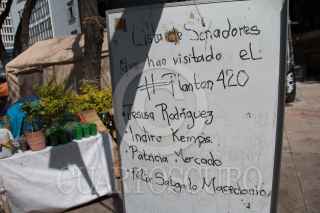 Lista de Senadores
Que han visitado el
#Planton 420
• Jesusa Rodríguez
• Indira Kempis
• Patricia Mercado
• Félix Salgado Macedonio
CUARTOSCURO